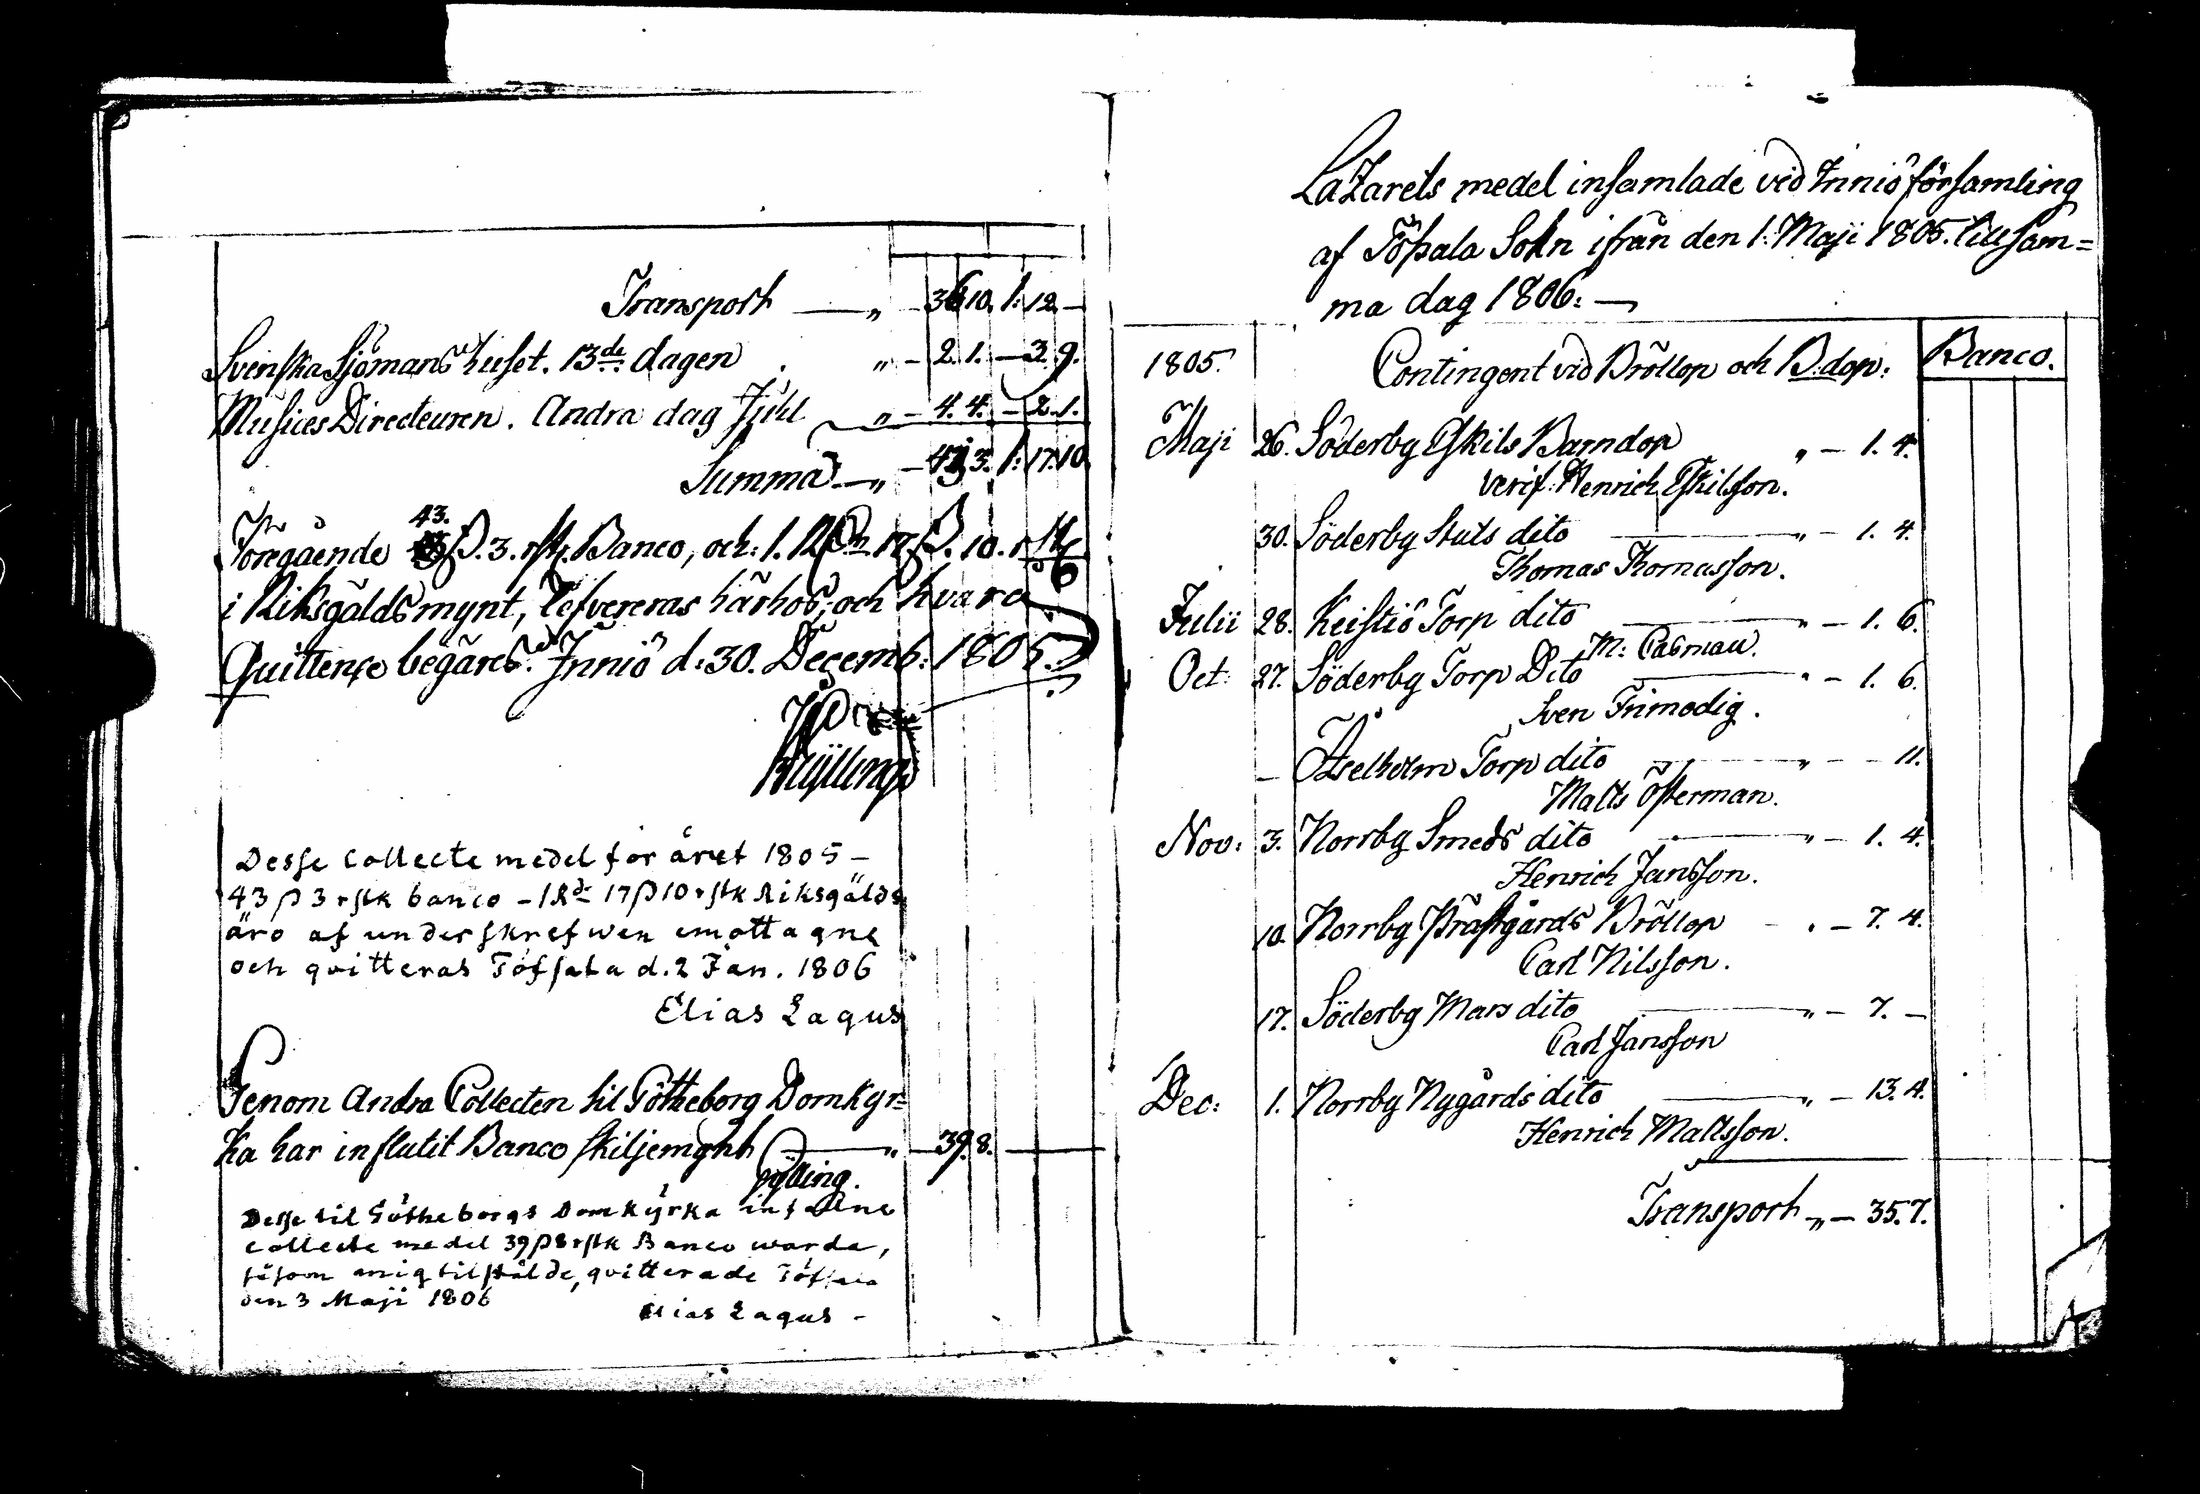 Transport — „ — 36 10. 1: 12. —
Svenska Sjömans huset. 13de dagen „ — 2. 1. — 3. 9.
Musices Directeuren. Andra dag Juhl „ — 4. 4. — 2. 1.
Summa — „ — 43 3. 1: 17. 10
43.
Föregående ß. 3. rst. Banco, och: 1. Rdr 17 ß. 10. rst
i Riksgäldsmynt, lefvereras härhos, och hvara
Quittence begäres. Inniö d: 30. Decemb: 1805.
Desse Collecte medel för året 1805 —
43 ß 3 rstk banco – 1 Rdr 17 ß 10 rstk Riksgälds
äro af underskrefwen emottagne
och qvitteras Töfsala d. 2 Jan. 1806
Elias Lagus
Genom Andra Collecten til Götheborg Domkyr=
ka har influtit Banco skiljemynt „ — 39. 8. —
Desse til Götheborgs Domkyrka infallne
collecte medel 39 ß 8 rstk Banco warda,
såsom mig tilstälde, qvitterade Töfsala
den 3 Maji 1806
Elias Lagus –
Lazarets medel insamlade vid Inniö församling
af Töfsala Sokn ifrån den 1: Maji 1805. till sam=
ma dag 1806: —
1805. Contingent vid Bröllop och B:dop: Banco.
Maji 26. Söderby Eskils Barndop „ — 1. 4.
verif: Henrich Eskilsson.
30. Söderby Stuts dito „ — 1. 4.
Thomas Thomasson.
Julii 28. Keistiö Torp dito „ — 1. 6.
M: Casman.
Oct: 27. Söderby Torp Dito „ — 1. 6.
Sven Frimodig.
— Åselholm Torp dito „ — — 11.
Matts Österman.
Nov: 3. Norrby Smeds dito „ — 1. 4.
Henrich Jansson.
10. Norrby Prästgårds Bröllop „ — 7. 4.
Carl Nilsson.
17. Söderby Mars dito „ — 7. —
Carl Jansson
Dec: 1. Norrby Nygårds dito „ — 13. 4.
Henrich Mattsson.
Transport „ — 35. 7.